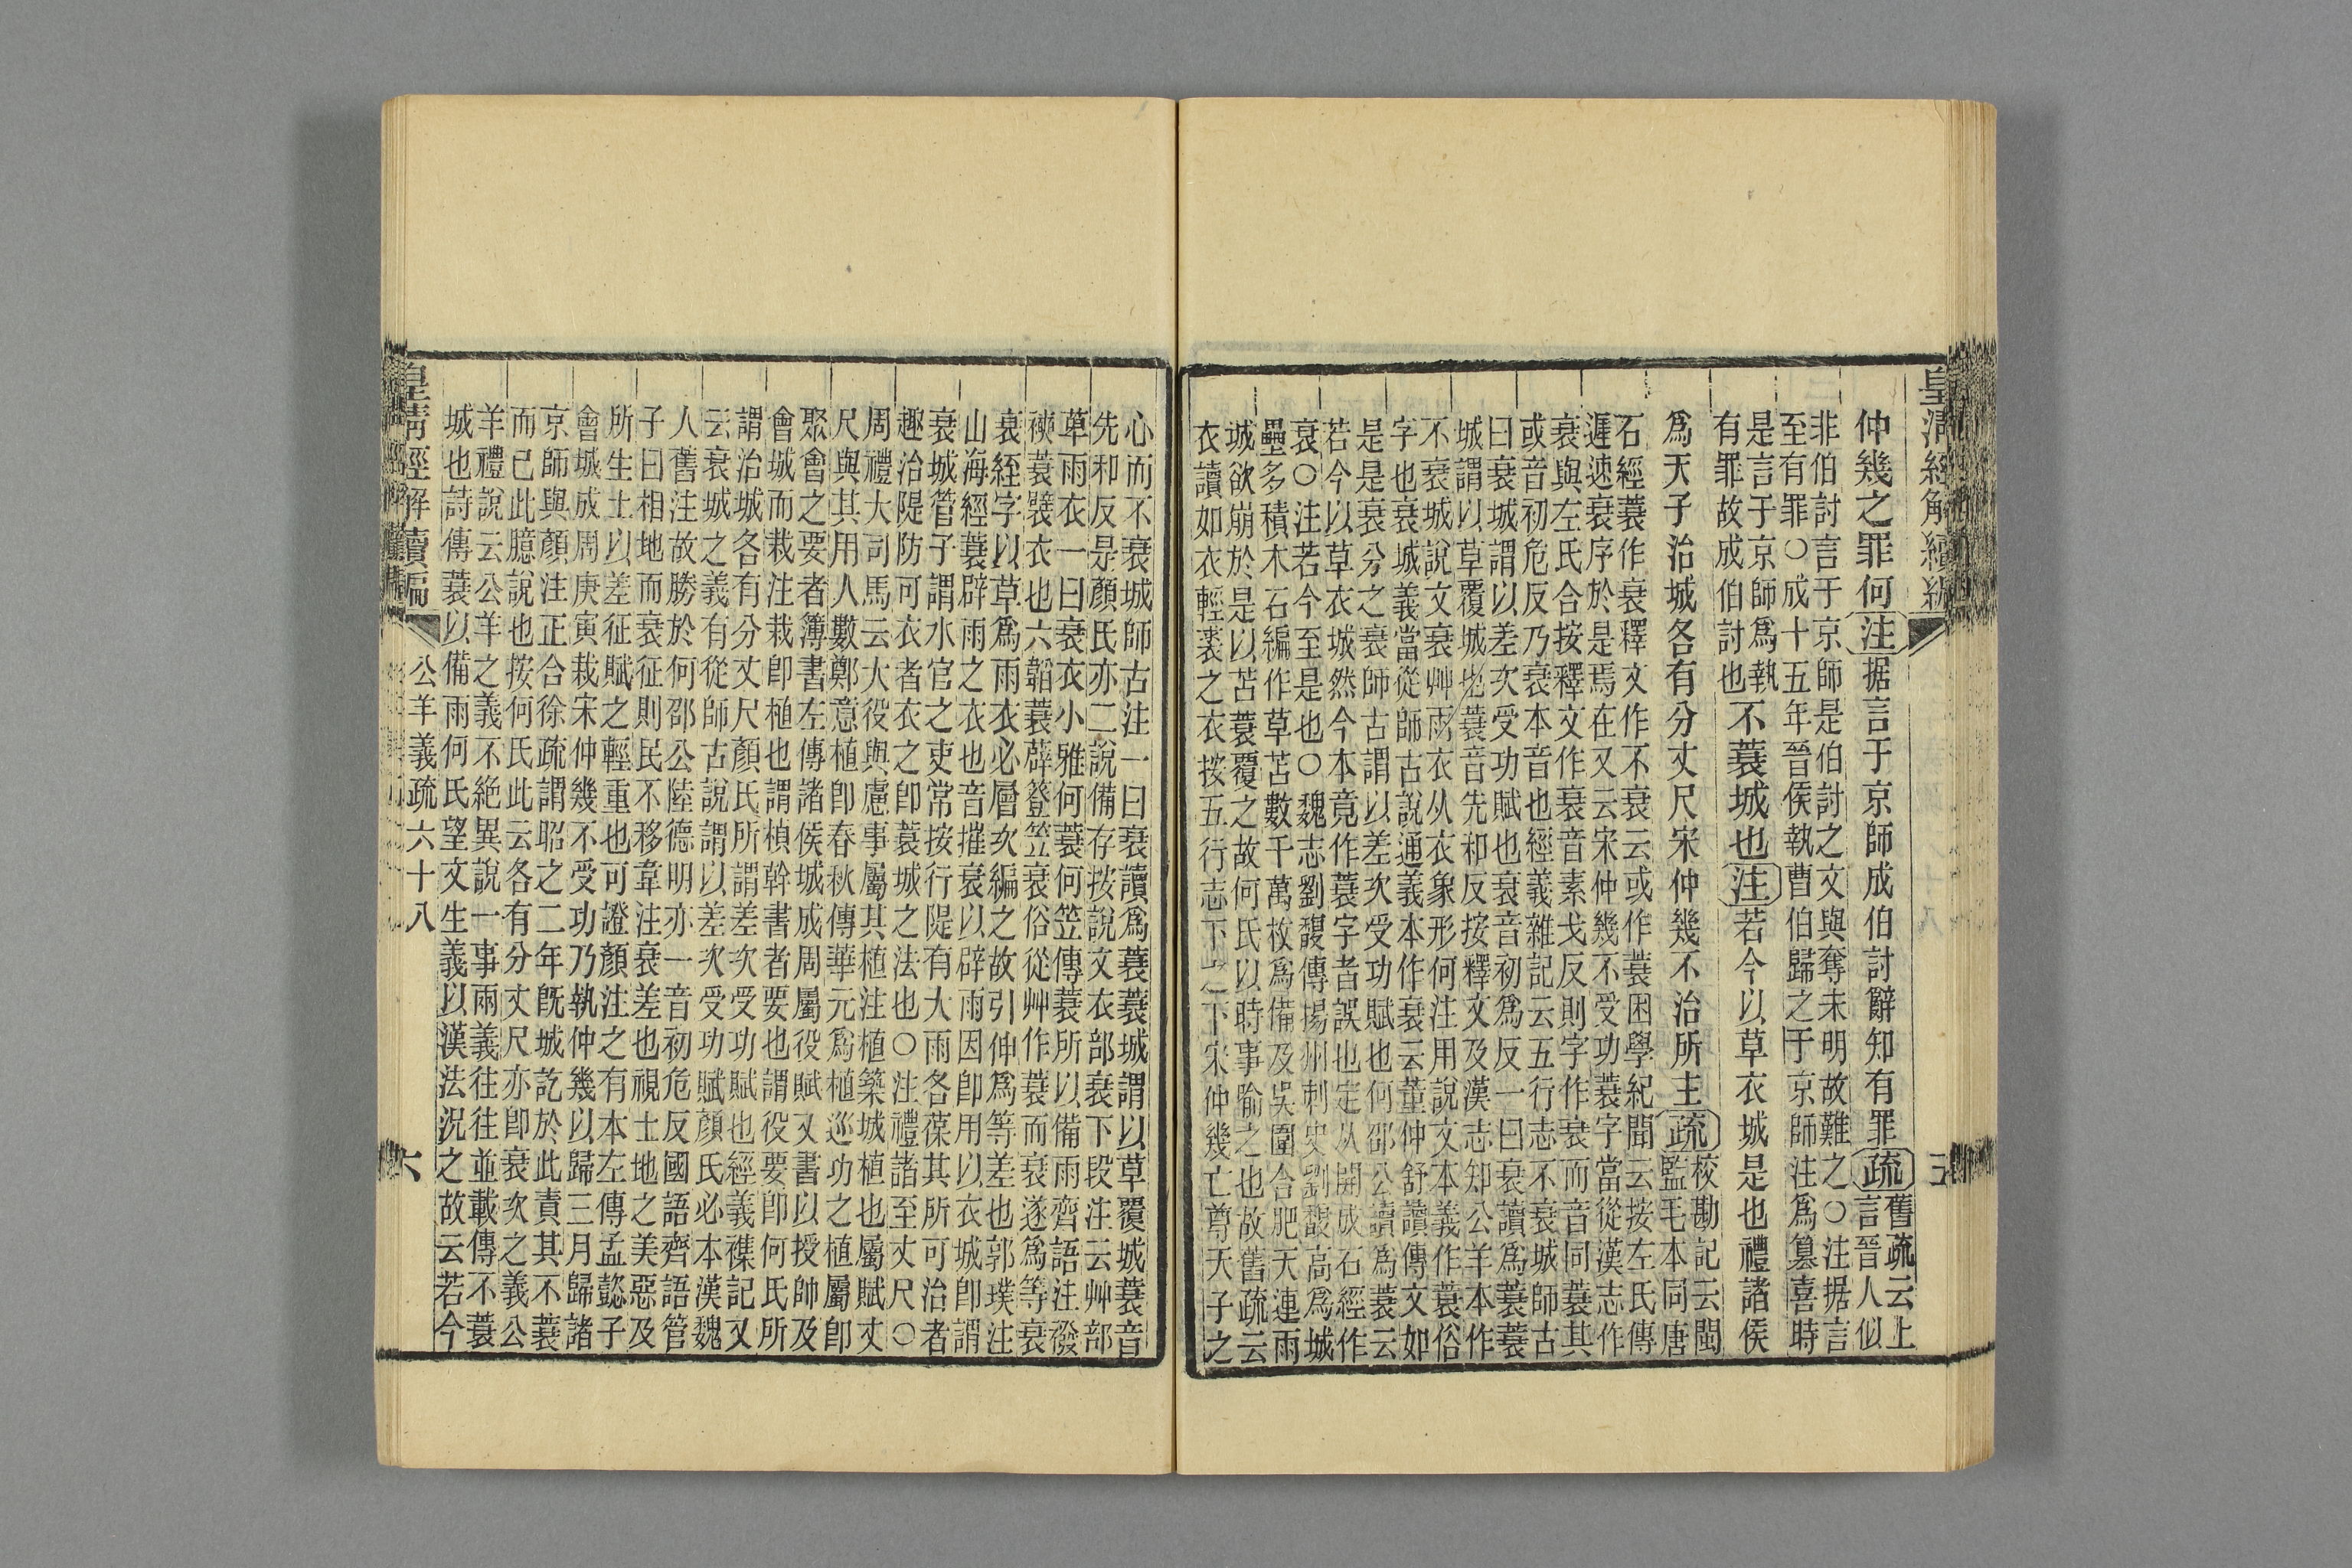 皇清經解續編
仲幾之罪何注据言于京師成伯討辭知有罪疏舊疏云上
言晉人似
非伯討言于京師是伯討之文與奪未明故難之○注据言
至有罪○成十五年晉侯執曹伯歸之于京師注爲篡喜時
是言于京師爲執
有罪故成伯討也不蓑城也注若今以草衣城是也禮諸侯
爲天子治城各有分丈尺宋仲幾不治所主疏校勘記云閩
監毛本同唐
石經蓑作衰釋文作不衰云或作蓑困學紀聞云按左氏傳
遲速衰序於是焉在又云宋仲幾不受功蓑字當從漢志作
衰與左氏合按釋文作衰音素戈反則字作衰而音同蓑其
或音初危反乃衰本音也經義雜記云五行志不衰城師古
曰衰城謂以差次受功賦也衰音初爲反一曰衰讀爲蓑蓑
城謂以草覆城也蓑音先和反按釋文及漢志知公羊本作
不衰城說文衰艸雨衣从衣象形何注用說文本義作蓑俗
字也衰城義當從師古說通義本作衰云董仲舒讀傳文如
是是衰分之衰師古謂以差次受功賦也何邵公讀爲蓑云
若今以草衣城然今本竟作蓑字者誤也定从開成石經作
衰○注若今至是也○魏志劉馥傳揚州刺史劉馥高爲城
壘多積木石編作草苫數千萬枚爲備及吳圍合肥天連雨
城欲崩於是以苫蓑覆之故何氏以時事喻之也故舊疏云
衣讀如衣輕裘之衣按五行志下之下宋仲幾亡尊天子之
心而不衰城師古注一曰衰讀爲蓑蓑城謂以草覆城蓑音
先和反是顏氏亦二說備存按說文衣部衰下段注云艸部
萆雨衣一曰衰衣小雅何蓑何笠傳蓑所以備雨齊語注襏
襫蓑襞衣也六韜蓑薜簦笠衰俗從艸作蓑而衰遂爲等衰
衰絰字以草爲雨衣必層次編之故引伸爲等差也郭璞注
山海經蓑辟雨之衣也音摧衰以辟雨因卽用以衣城卽謂
衰城管子謂水官之吏常按行隄有大雨各葆其所可治者
趣治隄防可衣者衣之卽蓑城之法也○注禮諸至丈尺○
周禮大司馬云大役與慮事屬其植注植築城植也屬賦丈
尺與其用人數鄭意植卽春秋傳華元爲植巡功之植屬卽
聚會之要者簿書左傳諸侯城成周屬役賦又書以授帥及
會城而栽注栽卽植也謂楨幹書者要也謂役要卽何氏所
謂治城各有分丈尺顏氏所謂差次受功賦也經義襍記又
云衰城之義有從師古說謂以差次受功賦顏氏必本漢魏
人舊注故勝於何邵公陸德明亦一音初危反國語齊語管
子曰相地而衰征則民不移韋注衰差也視土地之美惡及
所生土以差征賦之輕重也可證顏注之有本左傳孟懿子
會城成周庚寅栽宋仲幾不受功乃執仲幾以歸三月歸諸
京師與顏注正合徐疏謂昭之二年旣城訖於此責其不蓑
而已此臆說也按何氏此云各有分丈尺亦卽衰次之義公
羊禮說云公羊之義不絕異說一事兩義往往並載傳不蓑
城也詩傳蓑以備雨何氏望文生義以漢法況之故云若今
皇清經解續編 公羊義疏六十八 六